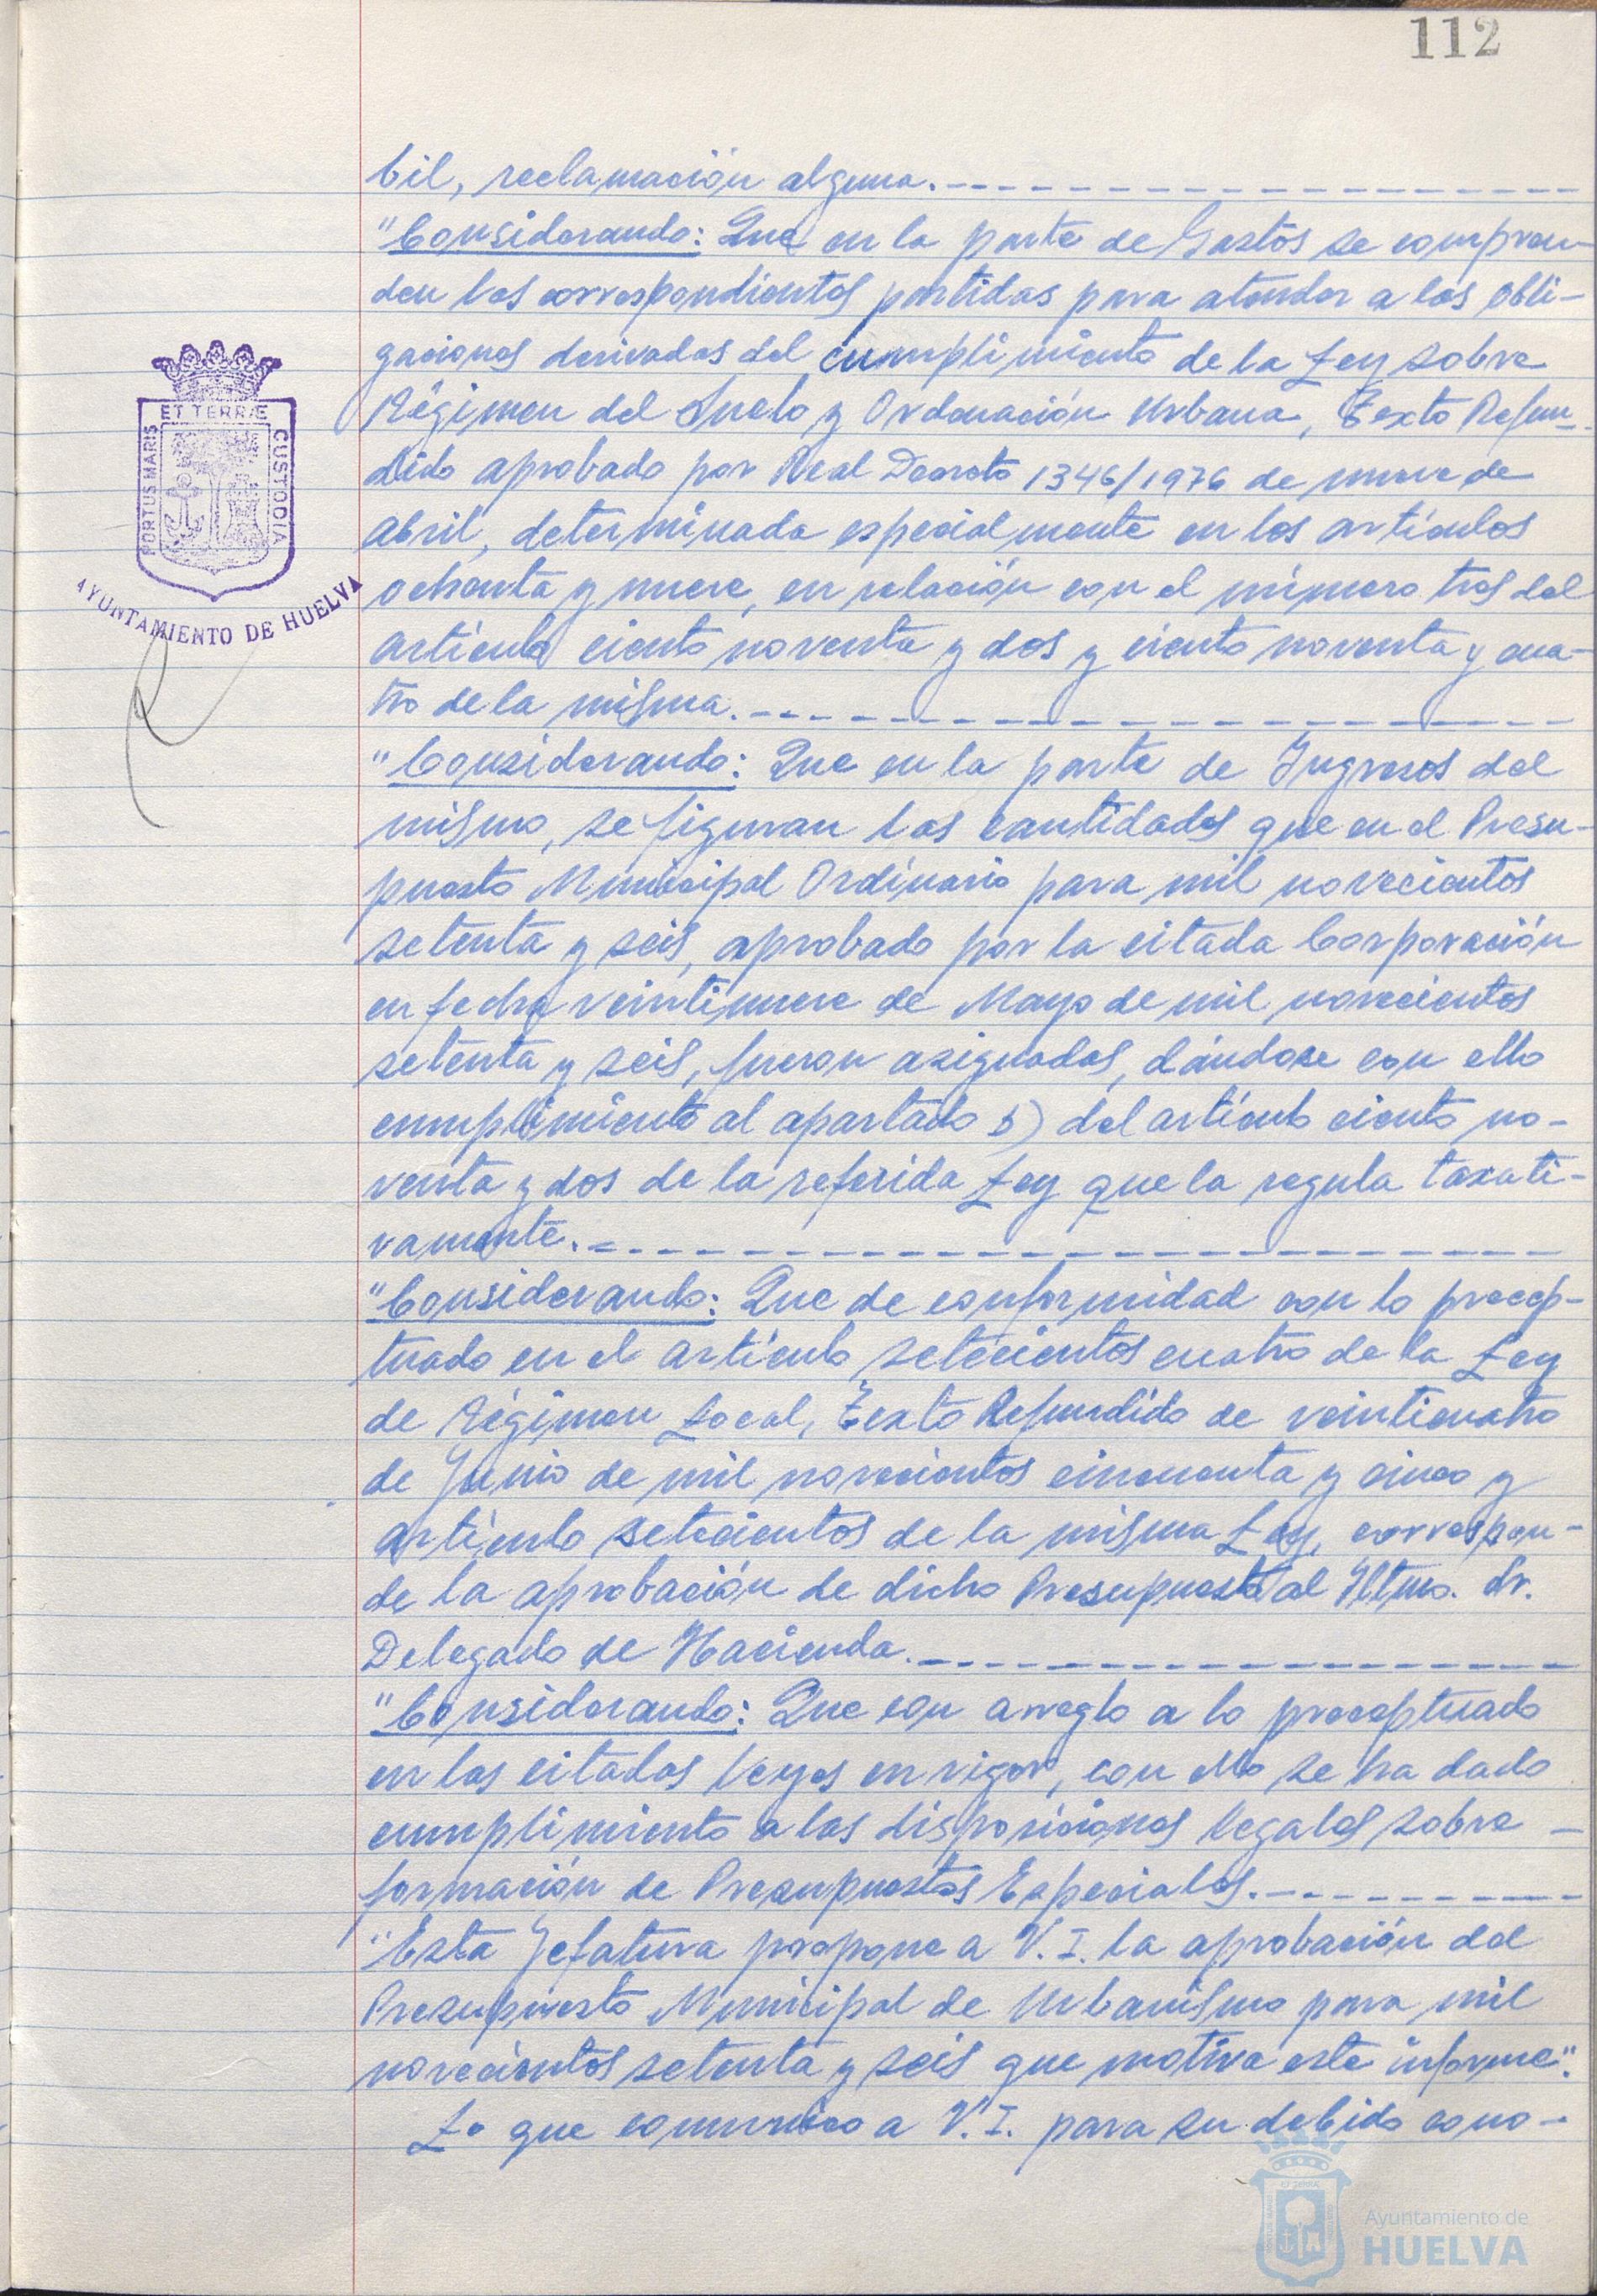 112
bil, reclamación alguna.
"Considerando: Que en la parte de Gastos se compren-
den las correspondientes partidas para atender a las obli-
gaciones derivadas del cumplimiento de la Ley sobre
Régimen del Suelo y Ordenación Urbana, Texto Refun-
dido aprobado por Real Decreto 1346/1976 de nueve de
abril, determinada especialmente en los artículos
ochenta y nueve, en relación con el número tres del
artículo ciento noventa y dos y ciento noventa y cua-
tro de la misma.
"Considerando: Que en la parte de Ingresos del
mismo, se figuran las cantidades que en el Presu-
puesto Municipal Ordinario para mil novecientos
setenta y seis, aprobado por la citada Corporación
en fecha veintinueve de Mayo de mil novecientos
setenta y seis, fueron asignadas, dándose con ello
cumplimiento al apartado s) del artículo ciento no-
venta y dos de la referida Ley que la regula taxati-
vamente.
"Considerando: Que de conformidad con lo precep-
tuado en el artículo setecientos cuatro de la Ley
de Régimen Local, Texto Refundido de veinticuatro
de Junio de mil novecientos cincuenta y cinco y
artículo setecientos de la misma Ley, correspon-
de la aprobación de dicho Presupuesto al Iltmo. Sr.
Delegado de Hacienda.
"Considerando: Que con arreglo a lo preceptuado
en las citadas leyes en vigor, con ello se ha dado
cumplimiento a las disposiciones legales sobre
formación de Presupuestos Especiales.
"Esta Jefatura propone a V.I. la aprobación del
Presupuesto Municipal de Urbanismo para mil
novecientos setenta y seis que motiva este informe".
Lo que comunico a V.I. para su debido cono-
PORTUS MARIS ET TERRÆ CUSTODIA
AYUNTAMIENTO DE HUELVA
Ayuntamiento de
HUELVA